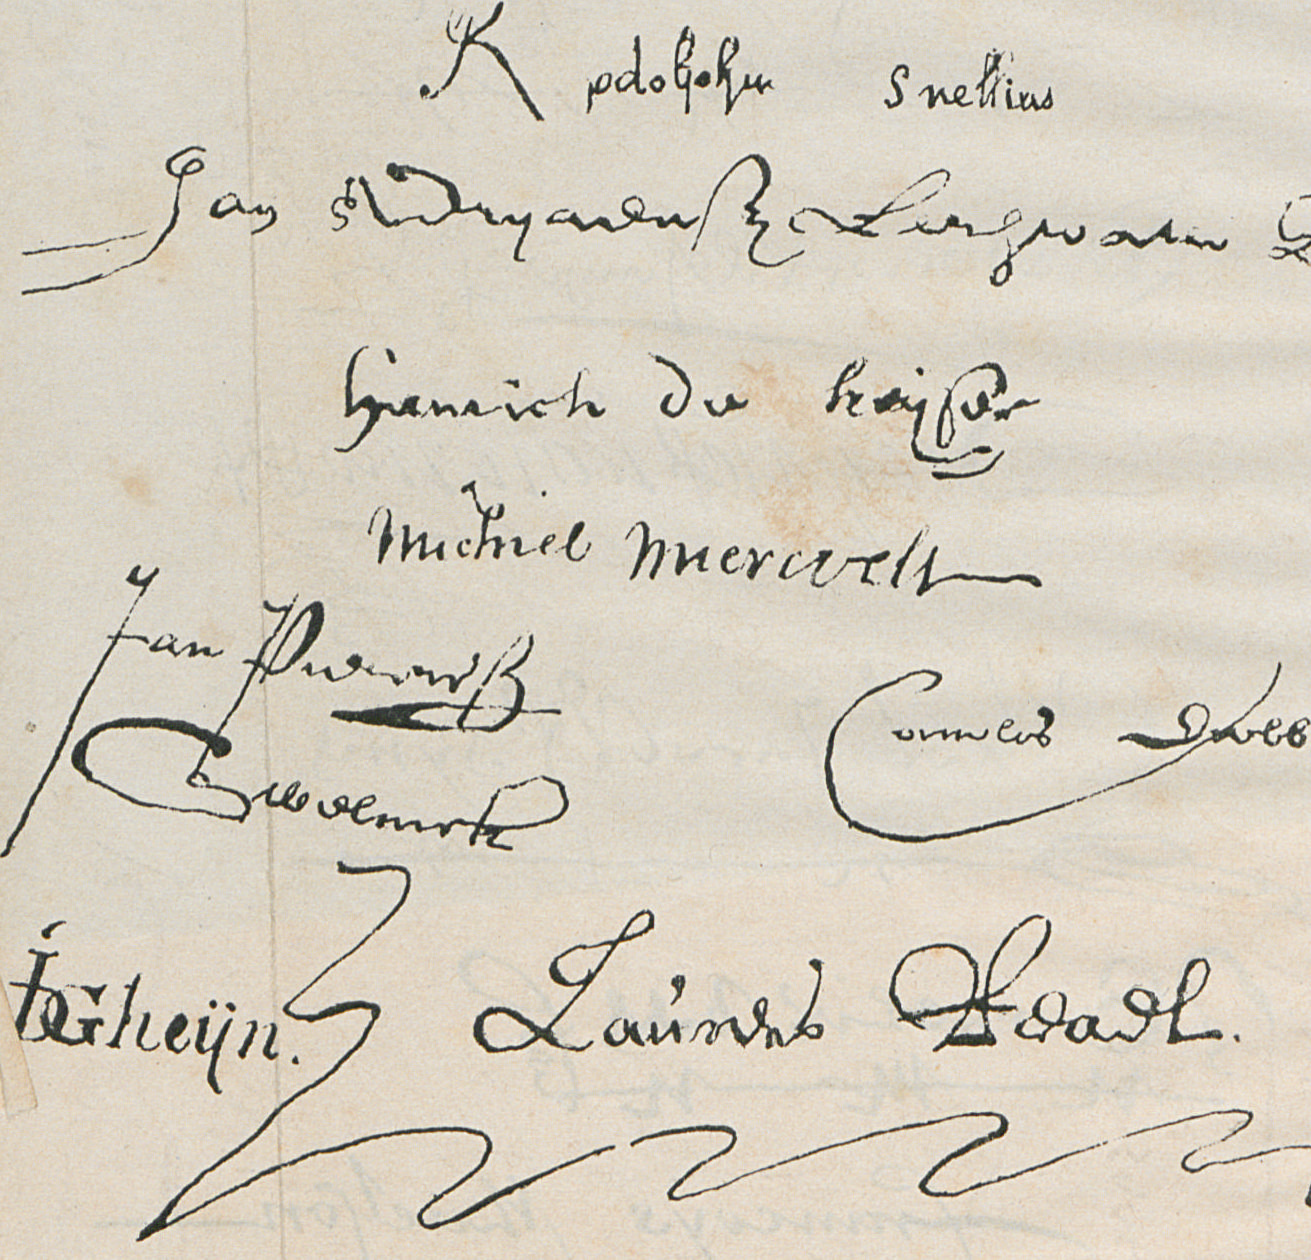 Rodolphus Snellius
Jan Adryaensz Leeghwater
Heinrich de keijser
Michiel Mierevelt
Jan Pietersz
Sweelinck
Cornelis
IDGheijn.
Laurens Reael.